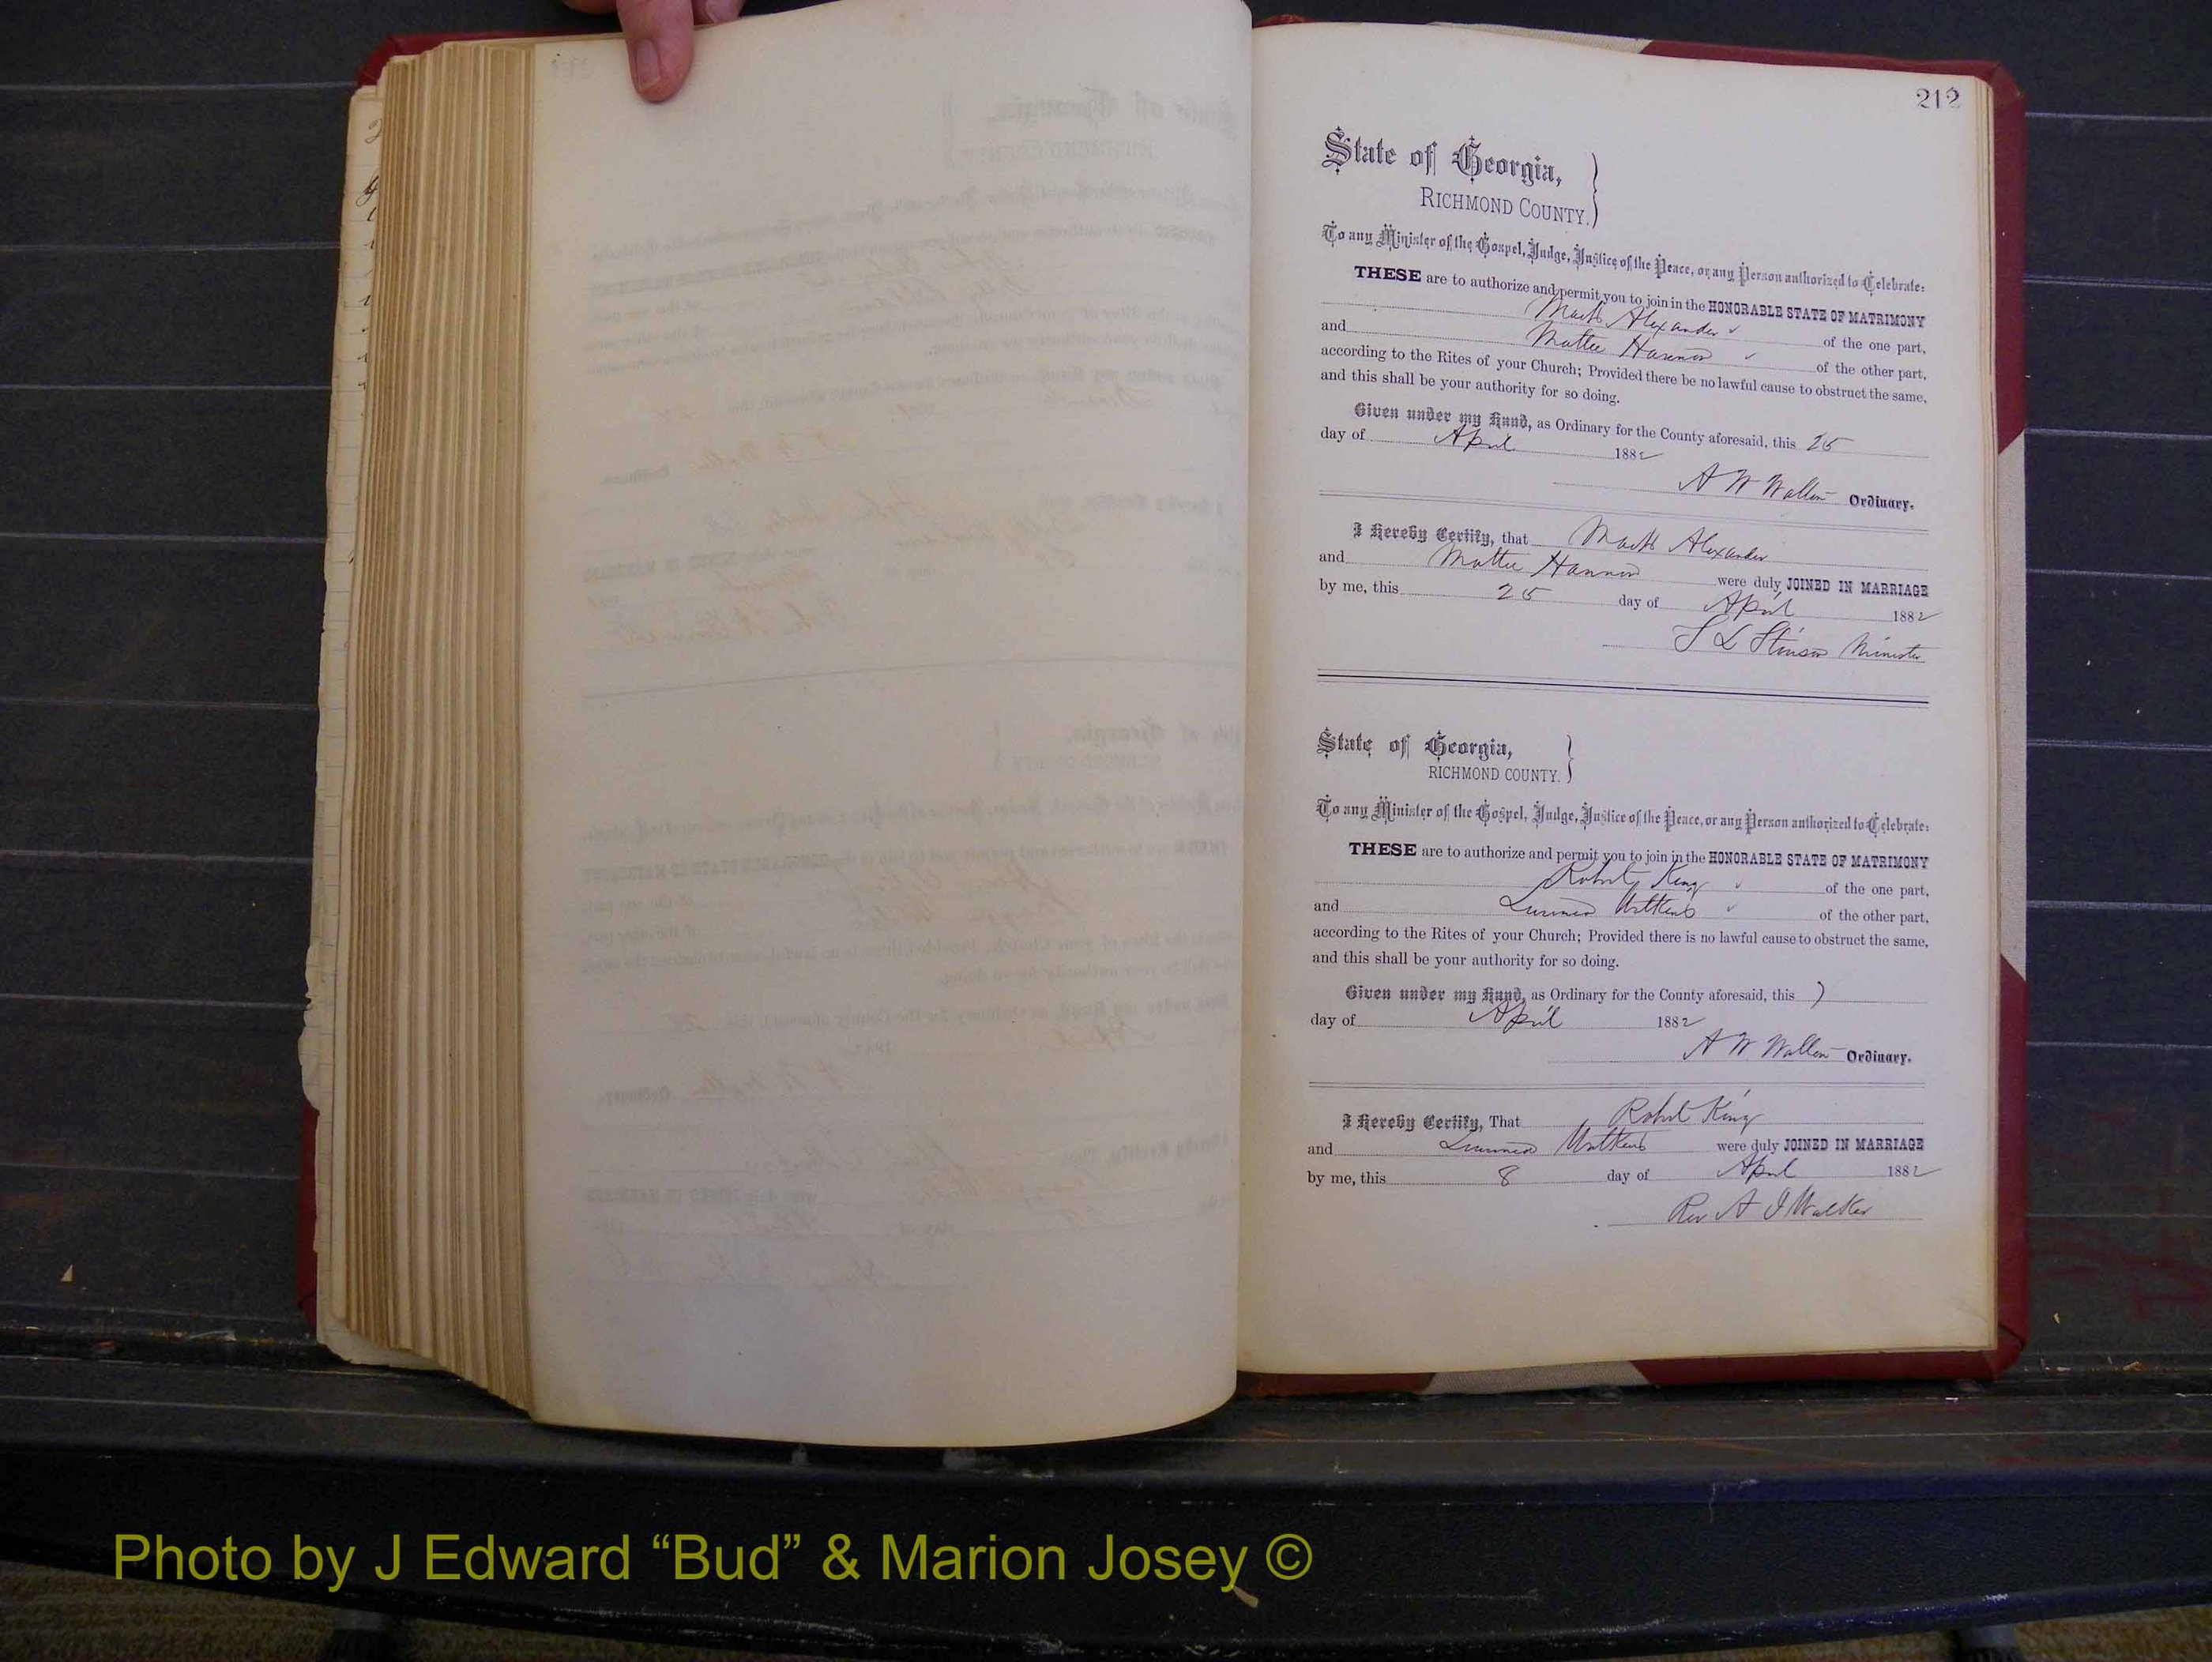 212
State of Georgia,
RICHMOND COUNTY.
To any Minister of the Gospel, Judge, Justice of the Peace, or any Person authorized to Celebrate:
THESE are to authorize and permit you to join in the HONORABLE STATE OF MATRIMONY
Alexander of the one part,
and Mattie Hannon of the other part,
according to the Rites of your Church; Provided there be no lawful cause to obstruct the same,
and this shall be your authority for so doing.
Given under my Hand, as Ordinary for the County aforesaid, this 25
day of April 1882
A W Walton Ordinary.
I Hereby Certify, that Alexander
and Mattie Hannon were duly JOINED IN MARRIAGE
by me, this 25 day of April 1882
S L Stinson Minister
State of Georgia,
RICHMOND COUNTY.
To any Minister of the Gospel, Judge, Justice of the Peace, or any Person authorized to Celebrate:
THESE are to authorize and permit you to join in the HONORABLE STATE OF MATRIMONY
Robert King of the one part,
and Watkins of the other part,
according to the Rites of your Church; Provided there is no lawful cause to obstruct the same,
and this shall be your authority for so doing.
Given under my Hand, as Ordinary for the County aforesaid, this 7
day of April 1882
A W Walton Ordinary.
I Hereby Certify, That Robert King
and Watkins were duly JOINED IN MARRIAGE
by me, this 8 day of April 1882
Rev A J Walker
Photo by J Edward “Bud” & Marion Josey ©